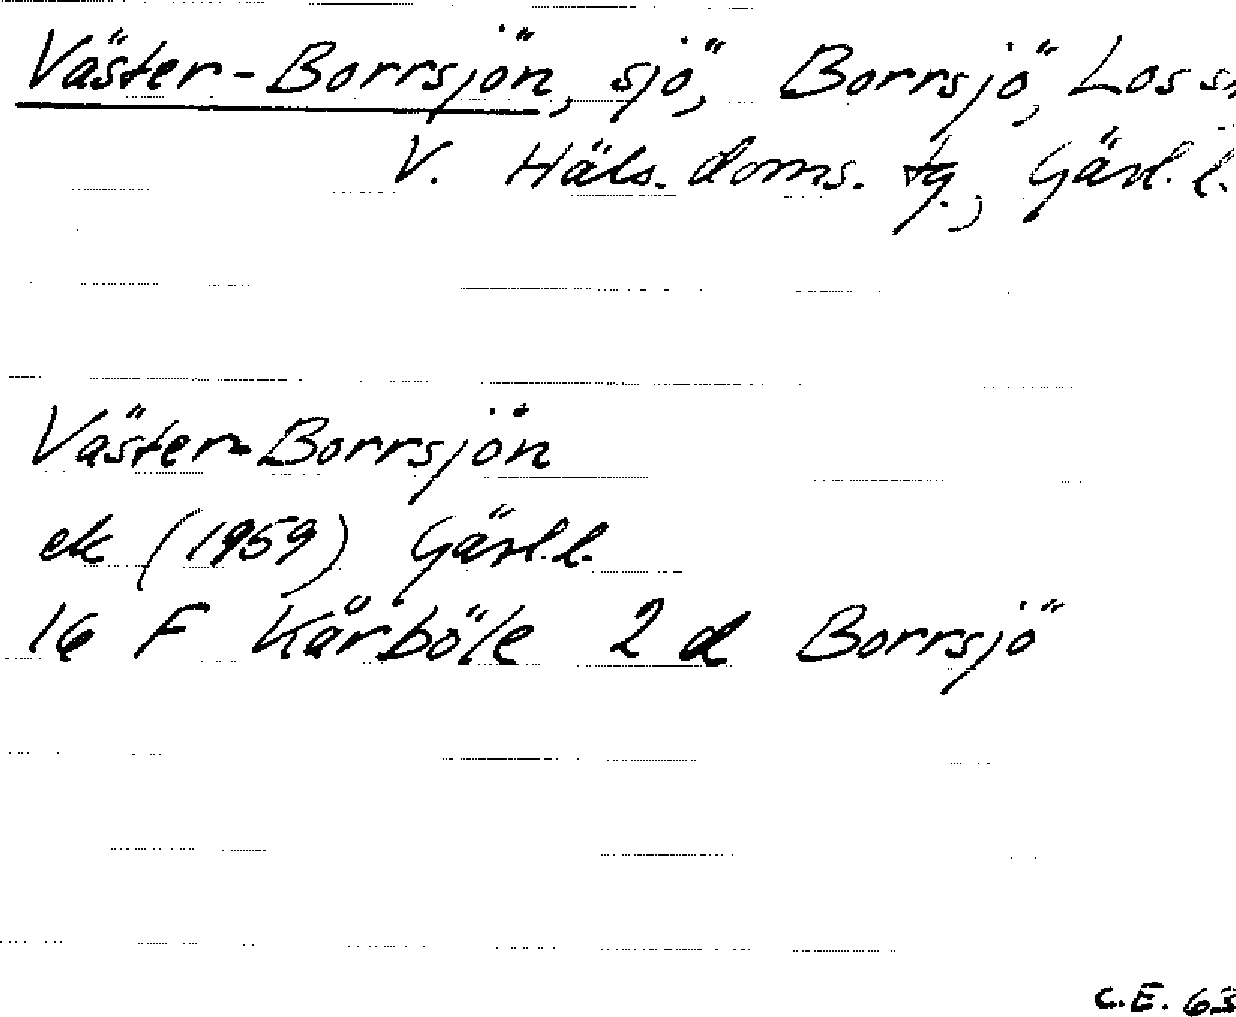 Väster-Borrsjön, sjö, Borrsjö, Los
V. Häls. doms. tg., Gävl. l.
Väster-Borrsjön
ek (1959) Gävl. l.
16 F Kårböle 2 d Borrsjö
C.E. 63